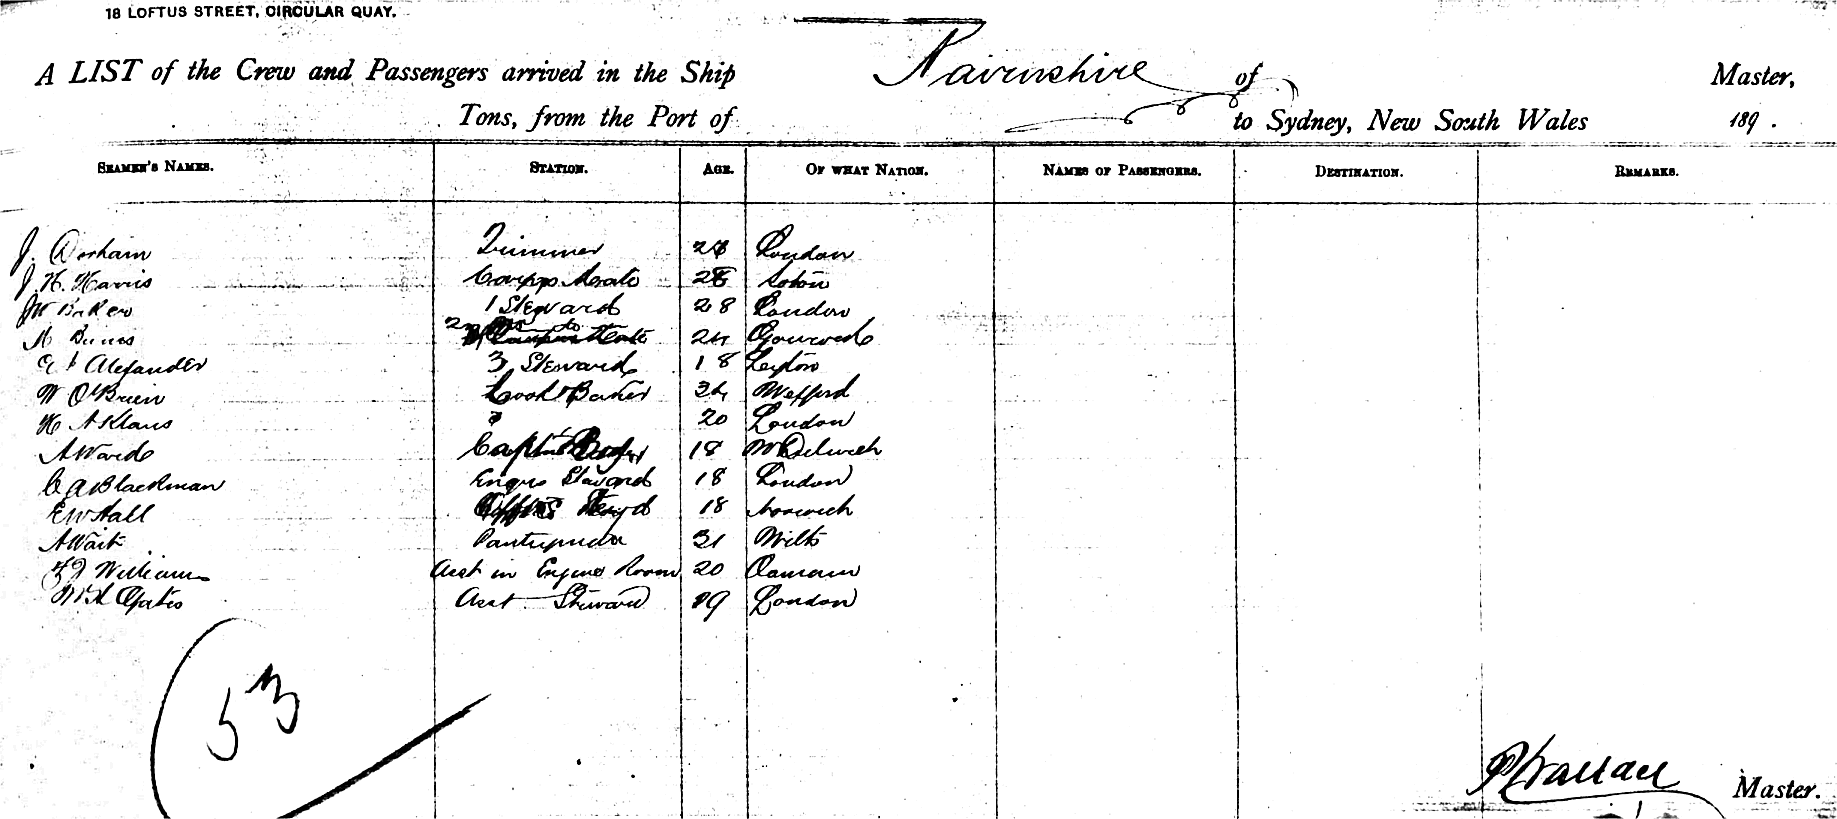 18 LOFTUS STREET, CIRCULAR QUAY.
A LIST of the Crew and Passengers arrived in the Ship Nairnshire of Master,
Tons, from the Port of to Sydney, New South Wales 189 .
SEAMEN'S NAMES. STATION. AGE. OF WHAT NATION. NAMES OF PASSENGERS. DESTINATION. REMARKS.
J. Dorham Trimmer 28 London
J. H. Harris Carprs Mate 28 Soton
W Baker 1 Steward 28 London
Binns 2nd 24 Gourock
Alexander 3 Steward 18 Leyton
W O'Brien Cook & Baker 34 Wexford
H A Klaus 20 London
A Ward Captns 18 W Dulwich
C A Blackman Engrs Steward 18 London
E W Hall Stewd 18 Norwich
A Wait Pantryman 31 Wilts
Williams Asst in Engine Room 20 Oamaru
W H Oates Asst Steward 19 London
53
Wallace Master.